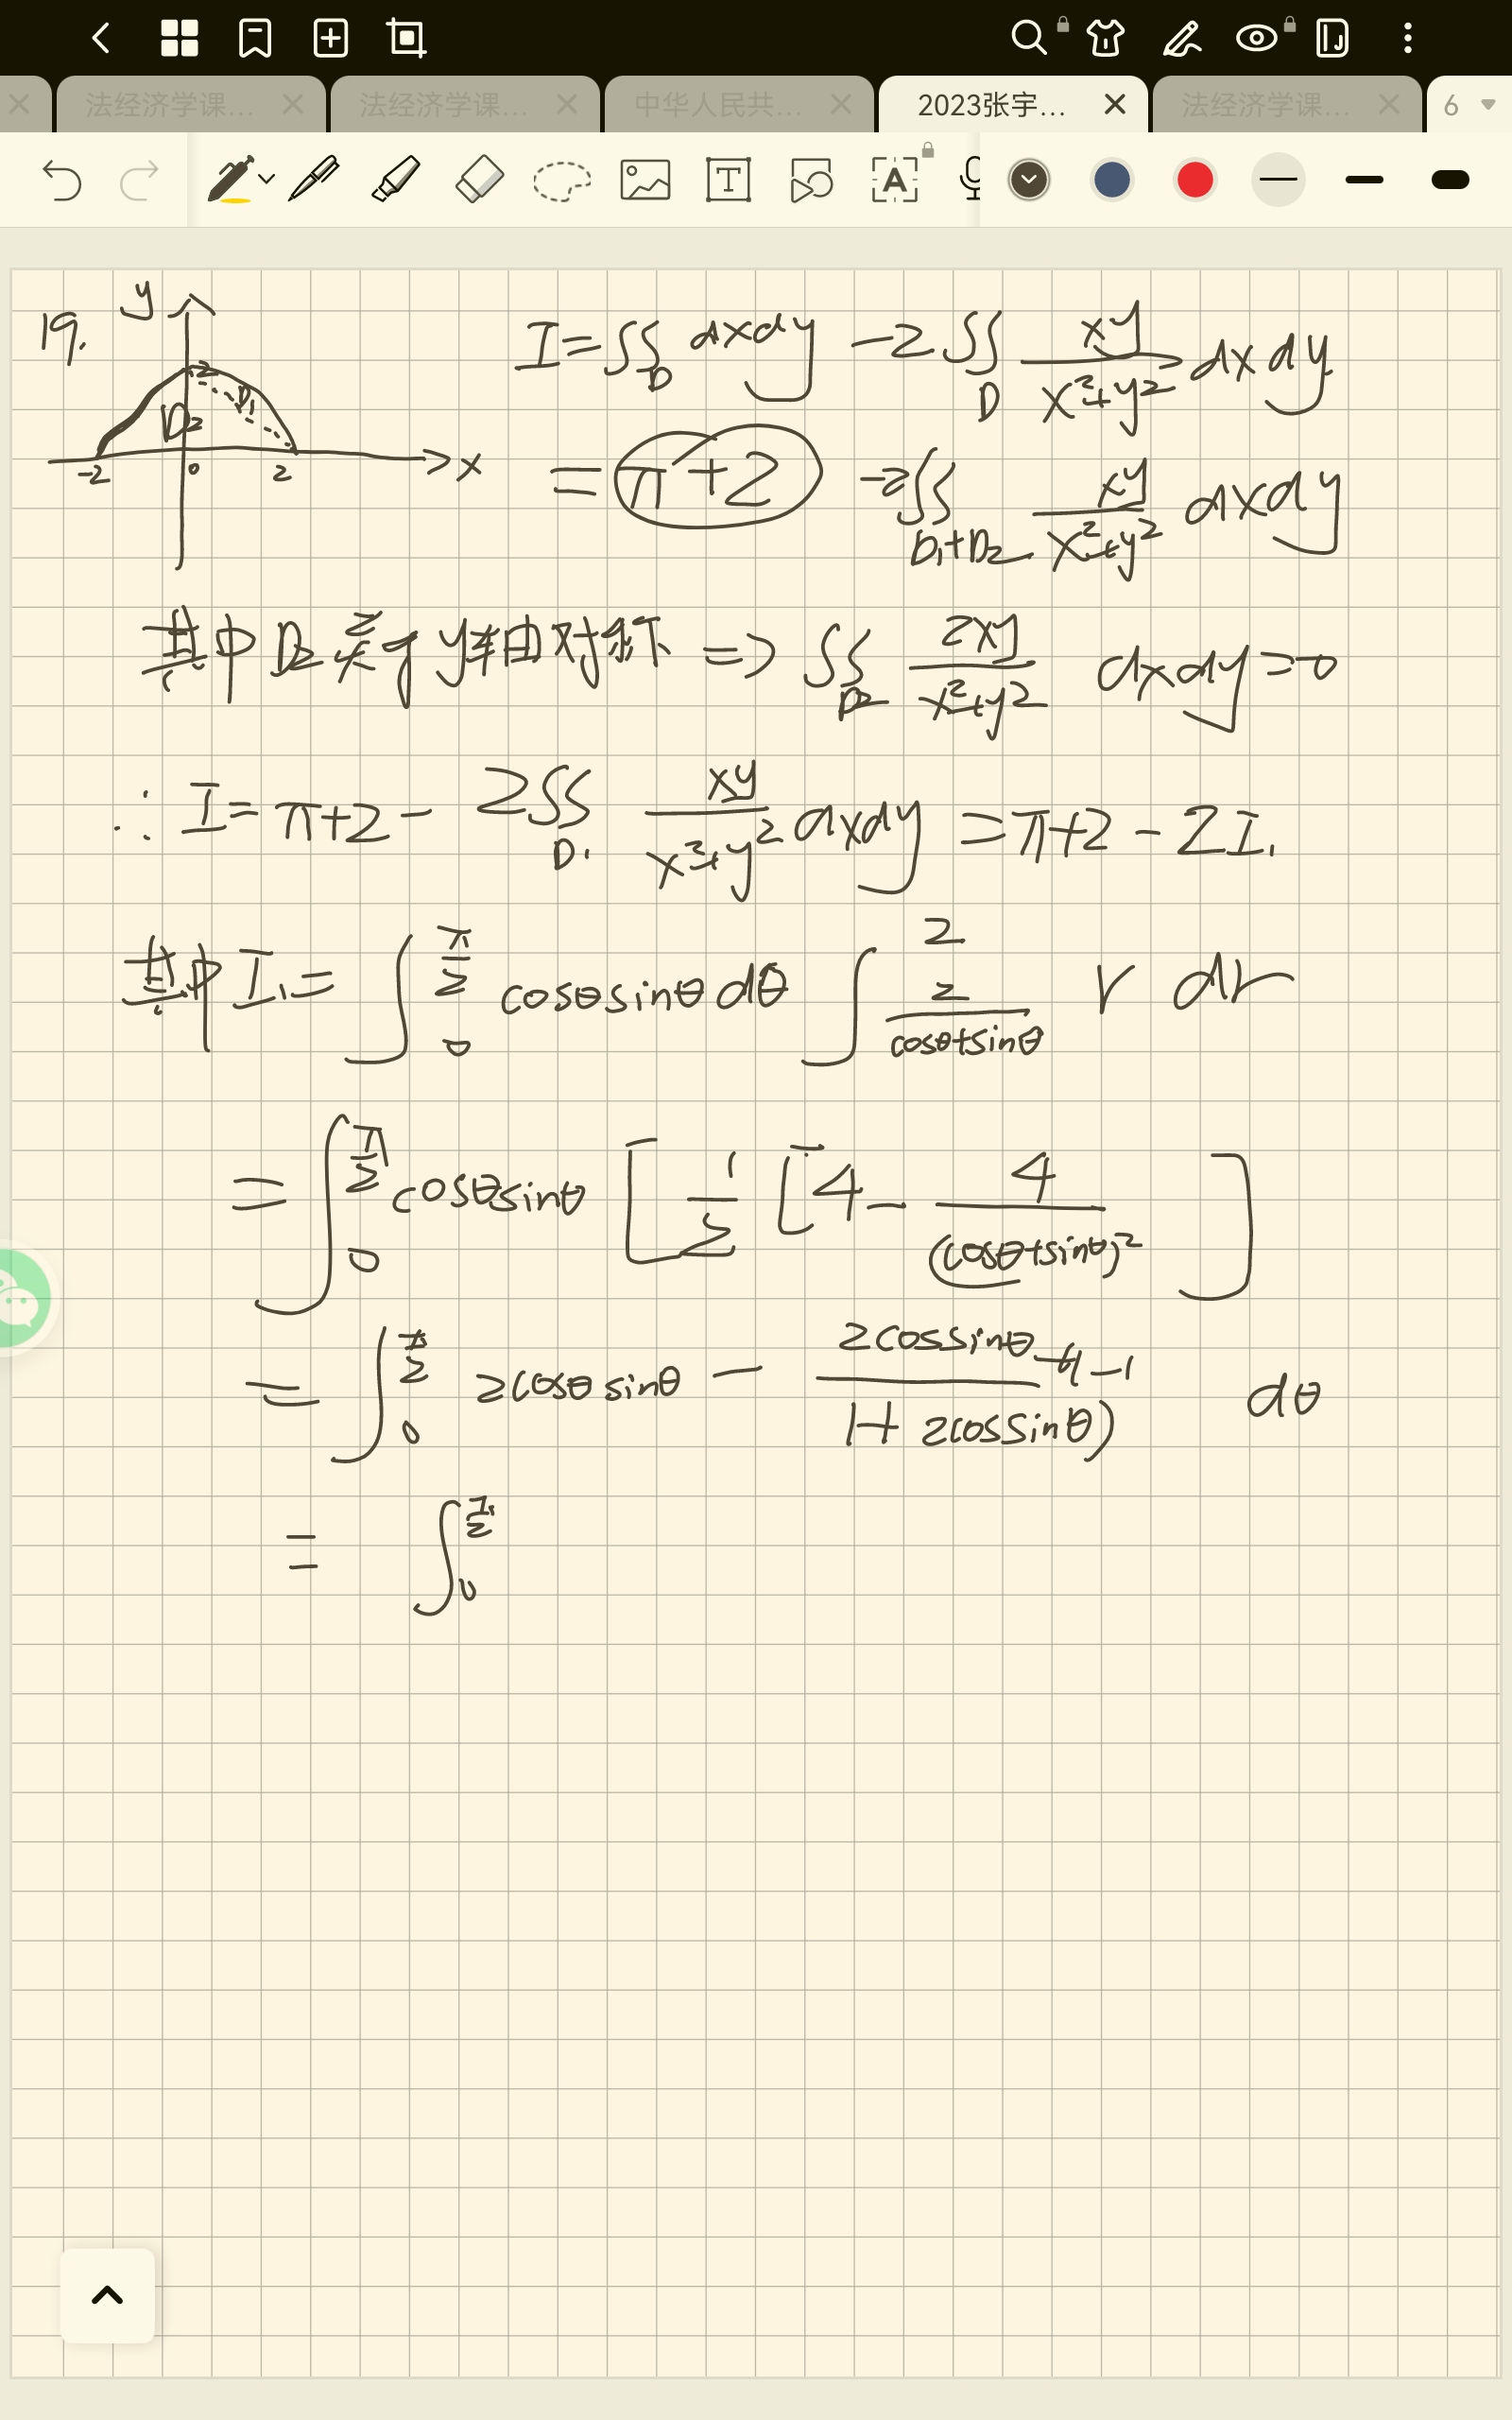 法经济学课... 法经济学课... 中华人民共... 2023张宇... 法经济学课... 6
T A
19. y 2 D₁ D₂ -2 0 2 x
I=∬_D dxdy -2∬_D xy/(x²+y²) dxdy
=π+2 -2∬_{D₁+D₂} xy/(x²+y²) dxdy
其中D₂关于y轴对称 => ∬_{D₂} 2xy/(x²+y²) dxdy=0
∴ I=π+2- 2∬_{D₁} xy/(x²+y²) dxdy =π+2-2I₁
其中I₁= ∫_0^{π/2} cosθsinθdθ ∫_{2/(cosθ+sinθ)}^2 r dr
= ∫_0^{π/2} cosθsinθ [1/2 [4- 4/(cosθ+sinθ)² ]
= ∫_0^{π/2} 2cosθsinθ - (2cossinθ+1-1)/(1+2cossinθ) dθ
= ∫_0^{π/2}